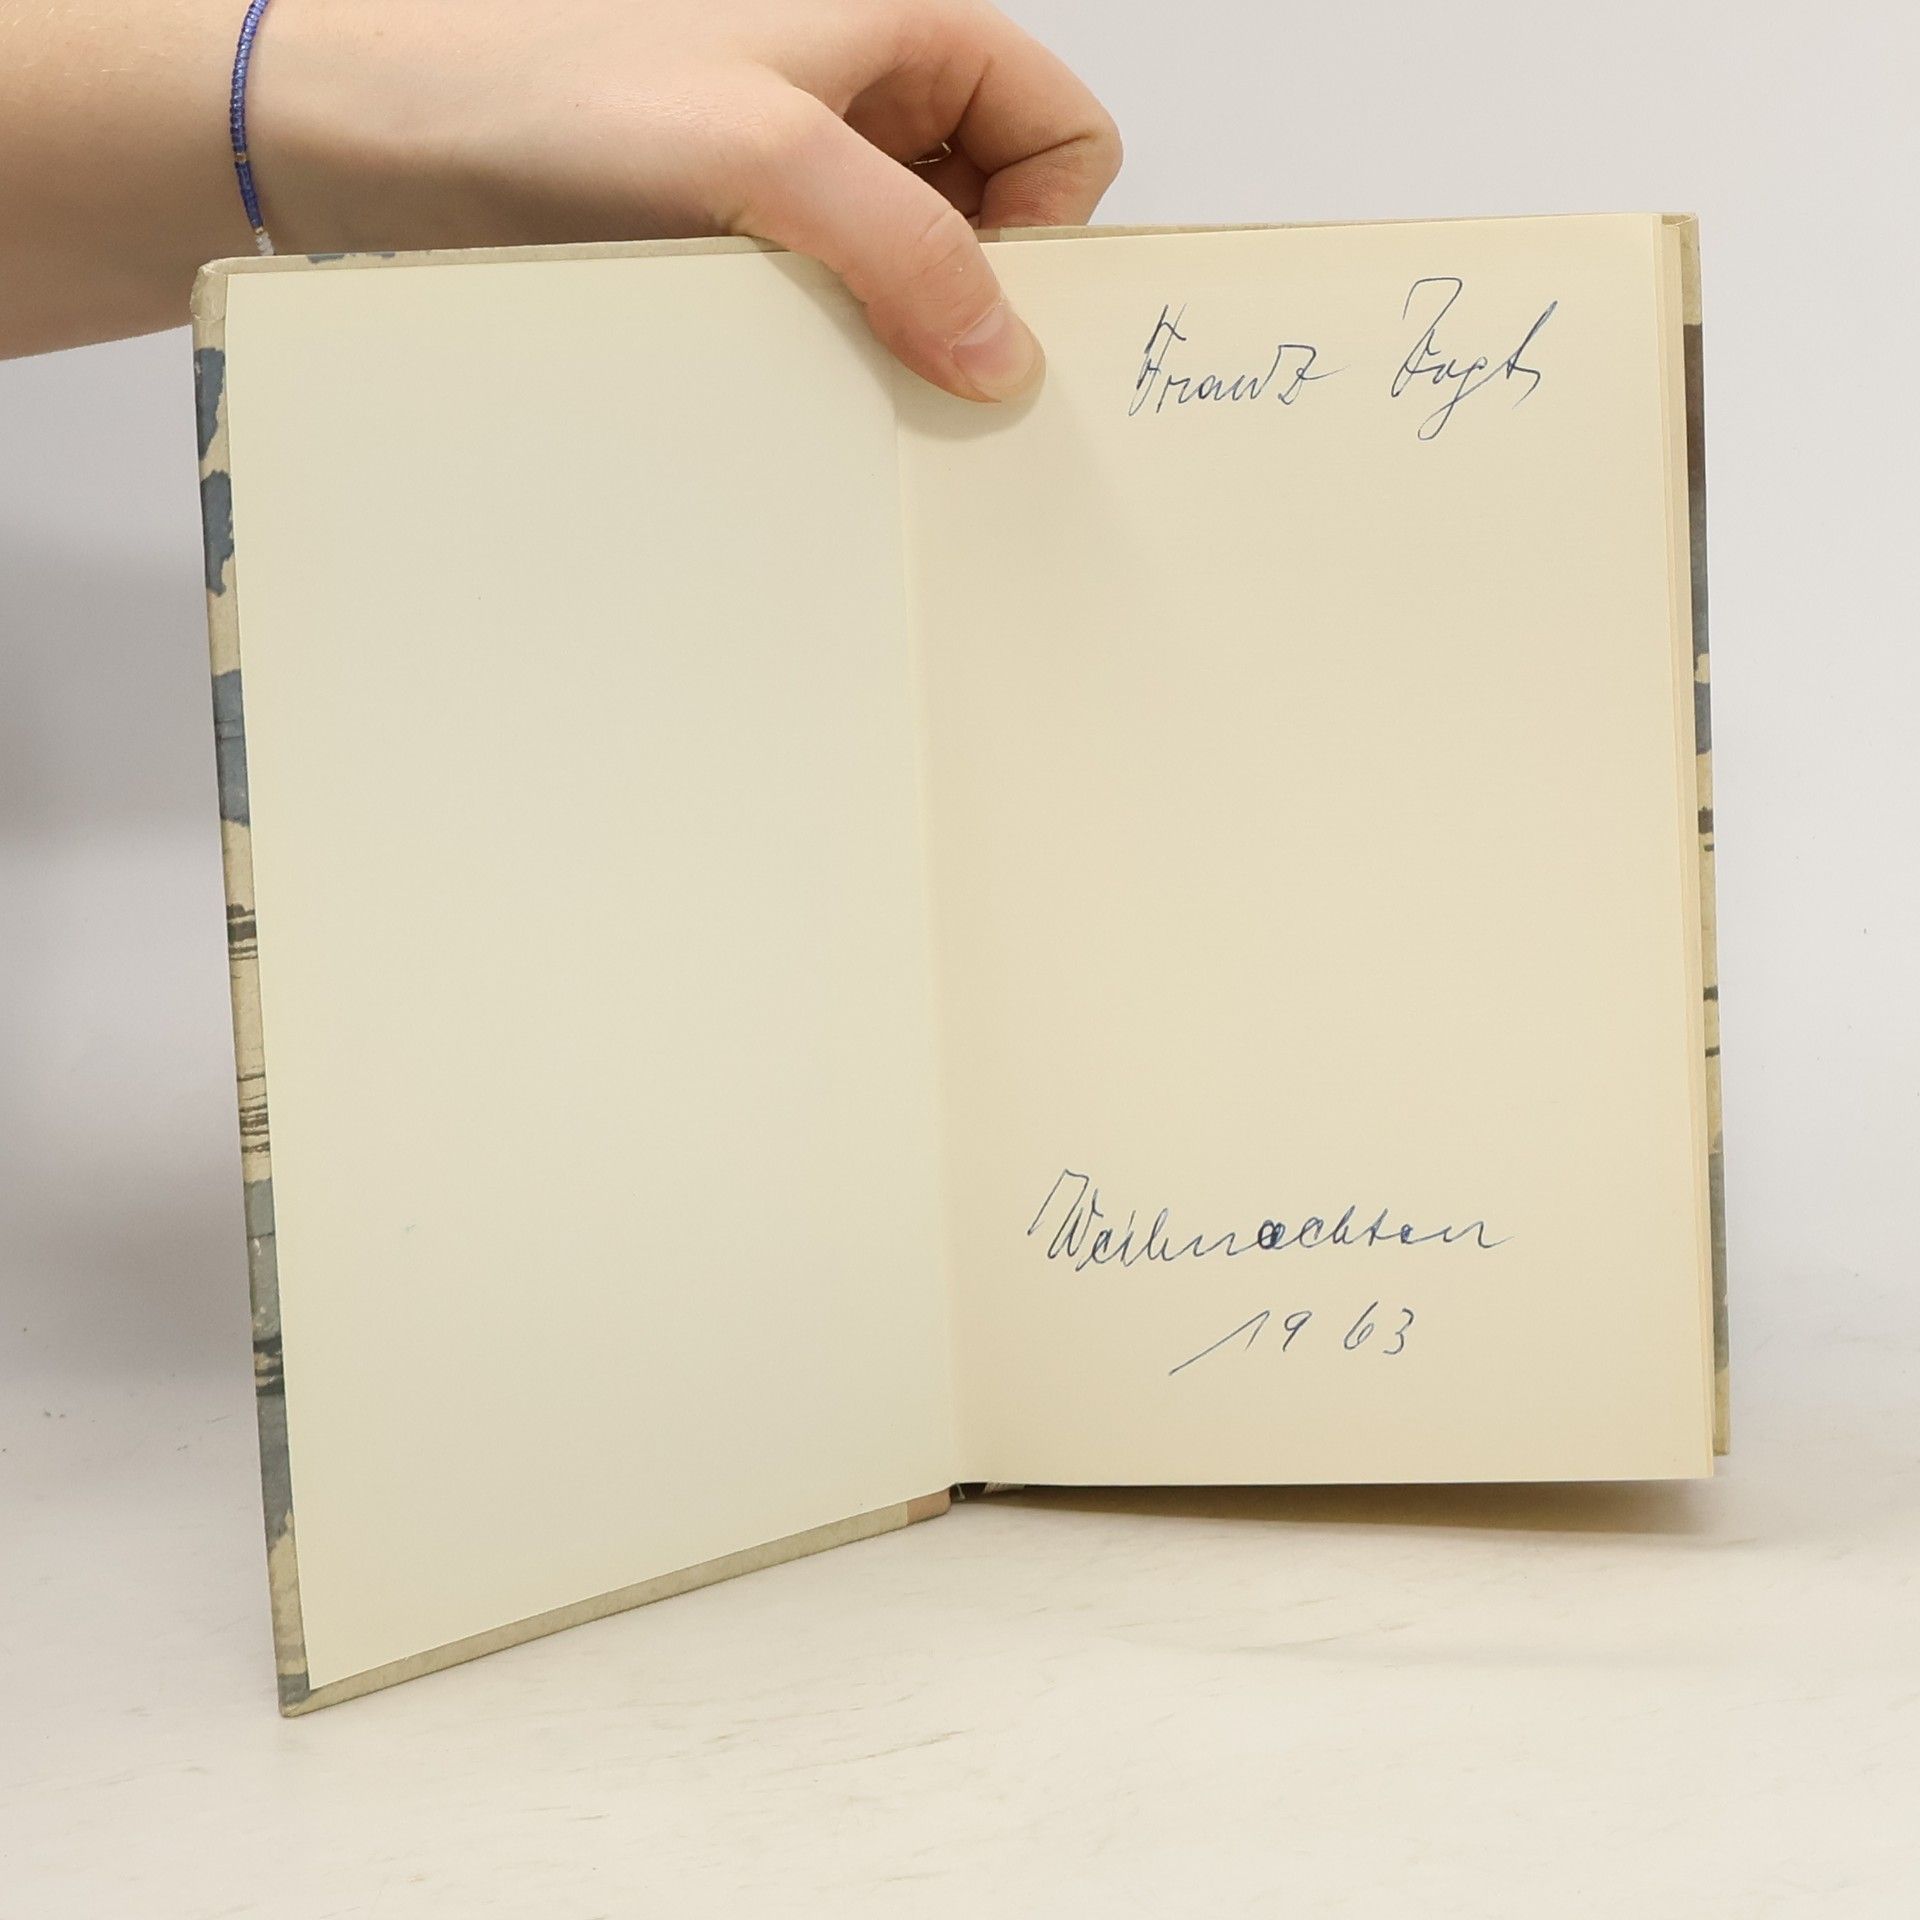 Franz Vogt
Weihnachten
1963